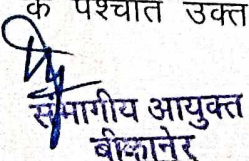 के पश्चात उक्त
संभागीय आयुक्त
बीकानेर